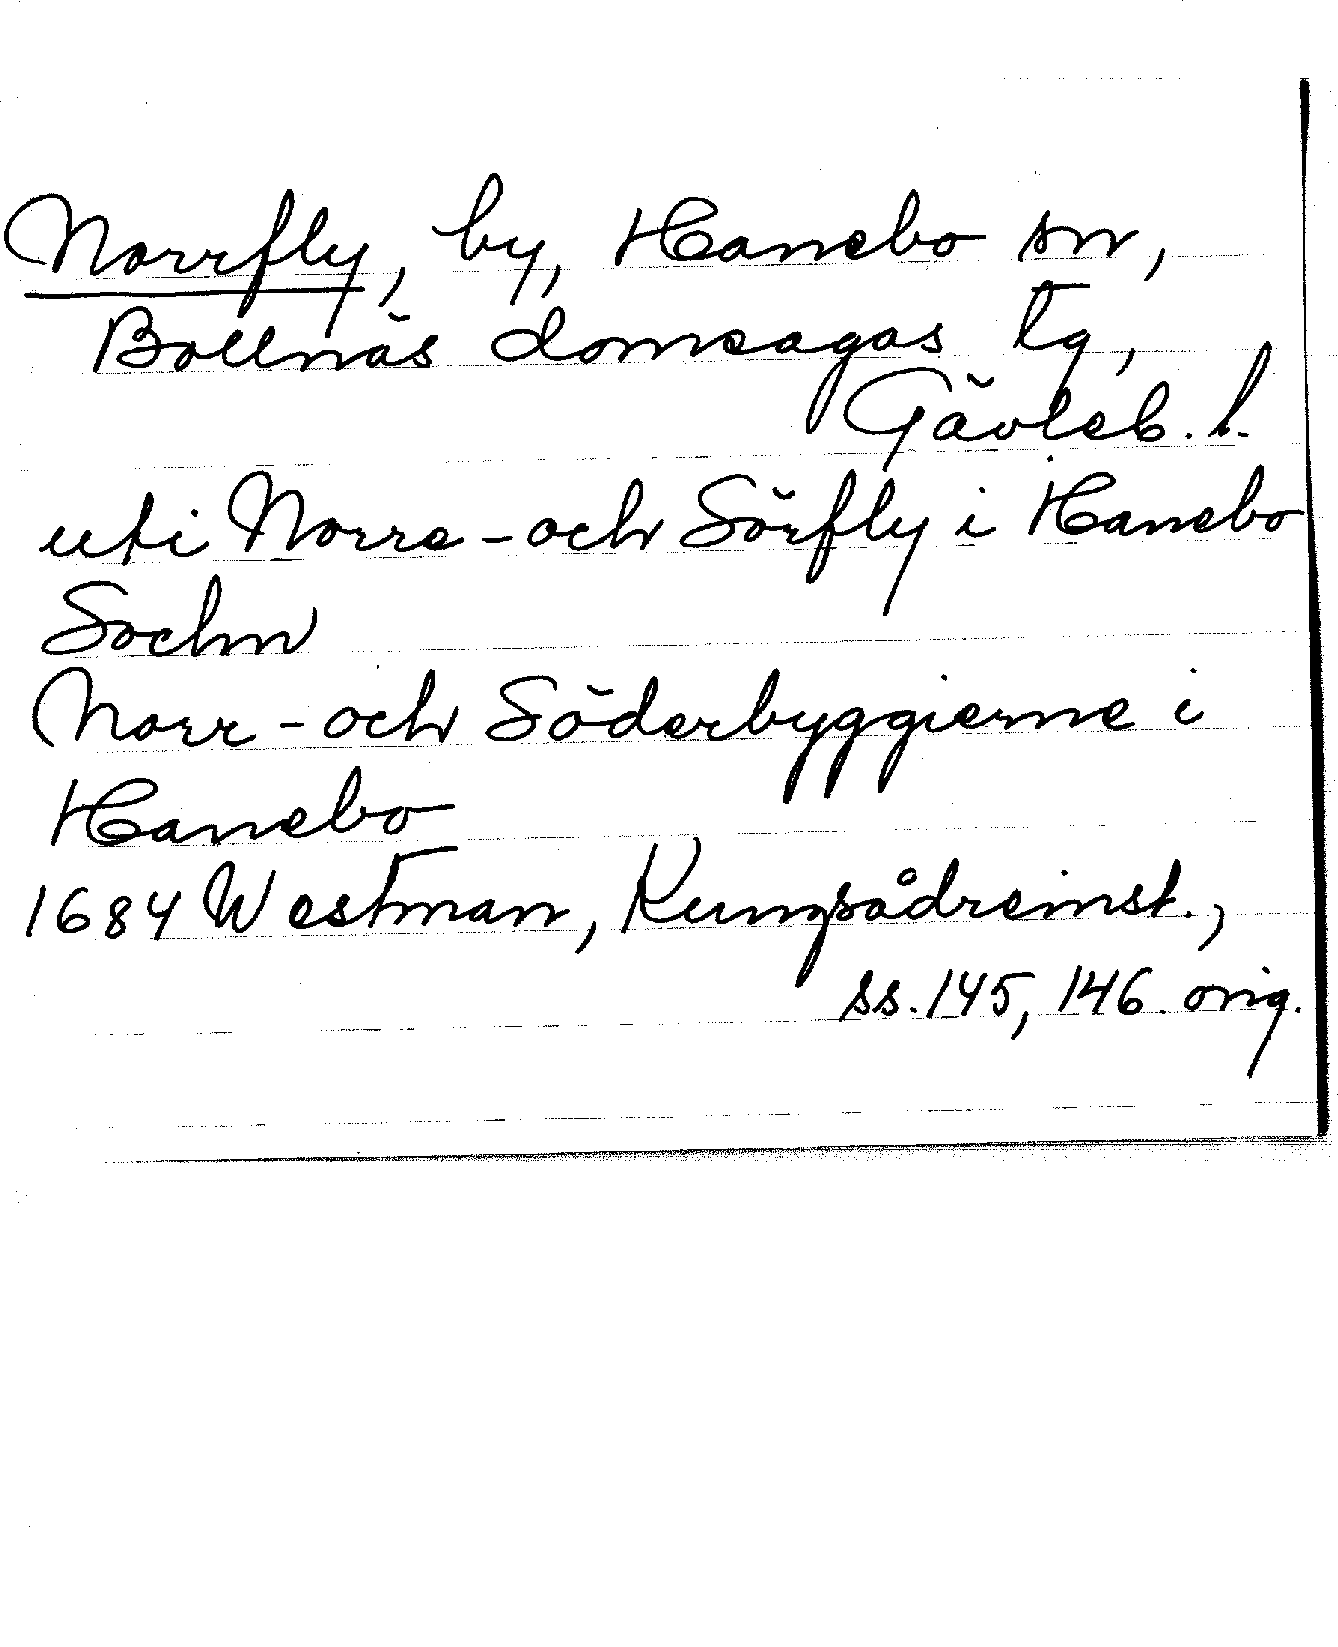 Norrfly, by, Hanebo sn,
Bollnäs domsagas tg,
Gävleb. l.
uti Norre-och Sörfly i Hanebo
Sochn
Norr-och Söderbyggierne i
Hanebo
1684 Westman, Kungsådreinst.,
ss. 145, 146. orig.